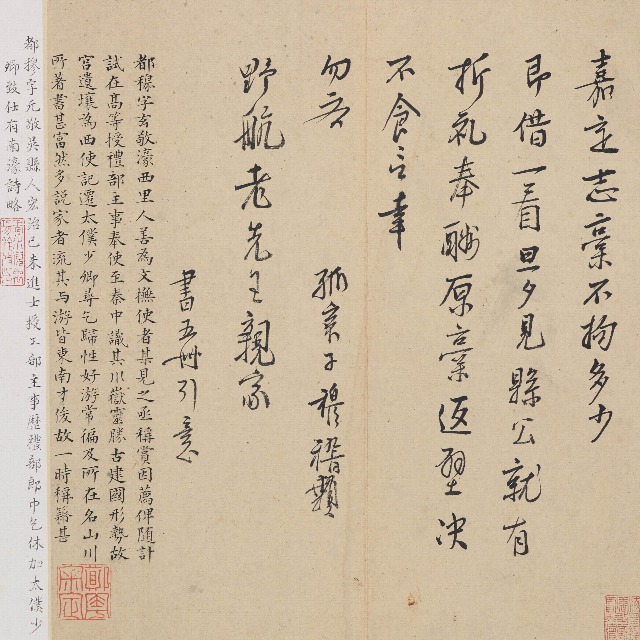 嘉定志稾不拘多少
即借一看旦夕見縣公就有
折礼奉酬原稾返璧决
不食言幸
勿吝 孤哀子穆稽顙
野航老先生親家
書五冊引意
都穆字玄敬濠西里人善為文撫使者某見之亟稱賞因薦俾隨計
試在髙等授禮部主事奉使至秦中識其川嶽靈勝古建國形勢故
宮遺壤為西使記遷太僕少卿尋乞歸性好游常徧及所在名山川
所著書甚富然多說家者流其与游皆東南才俊故一時稱籍甚
都穆字元敬吳縣人宏治己未進士授工部主事歷禮部郎中乞休加太僕少
卿致仕有南濠詩略